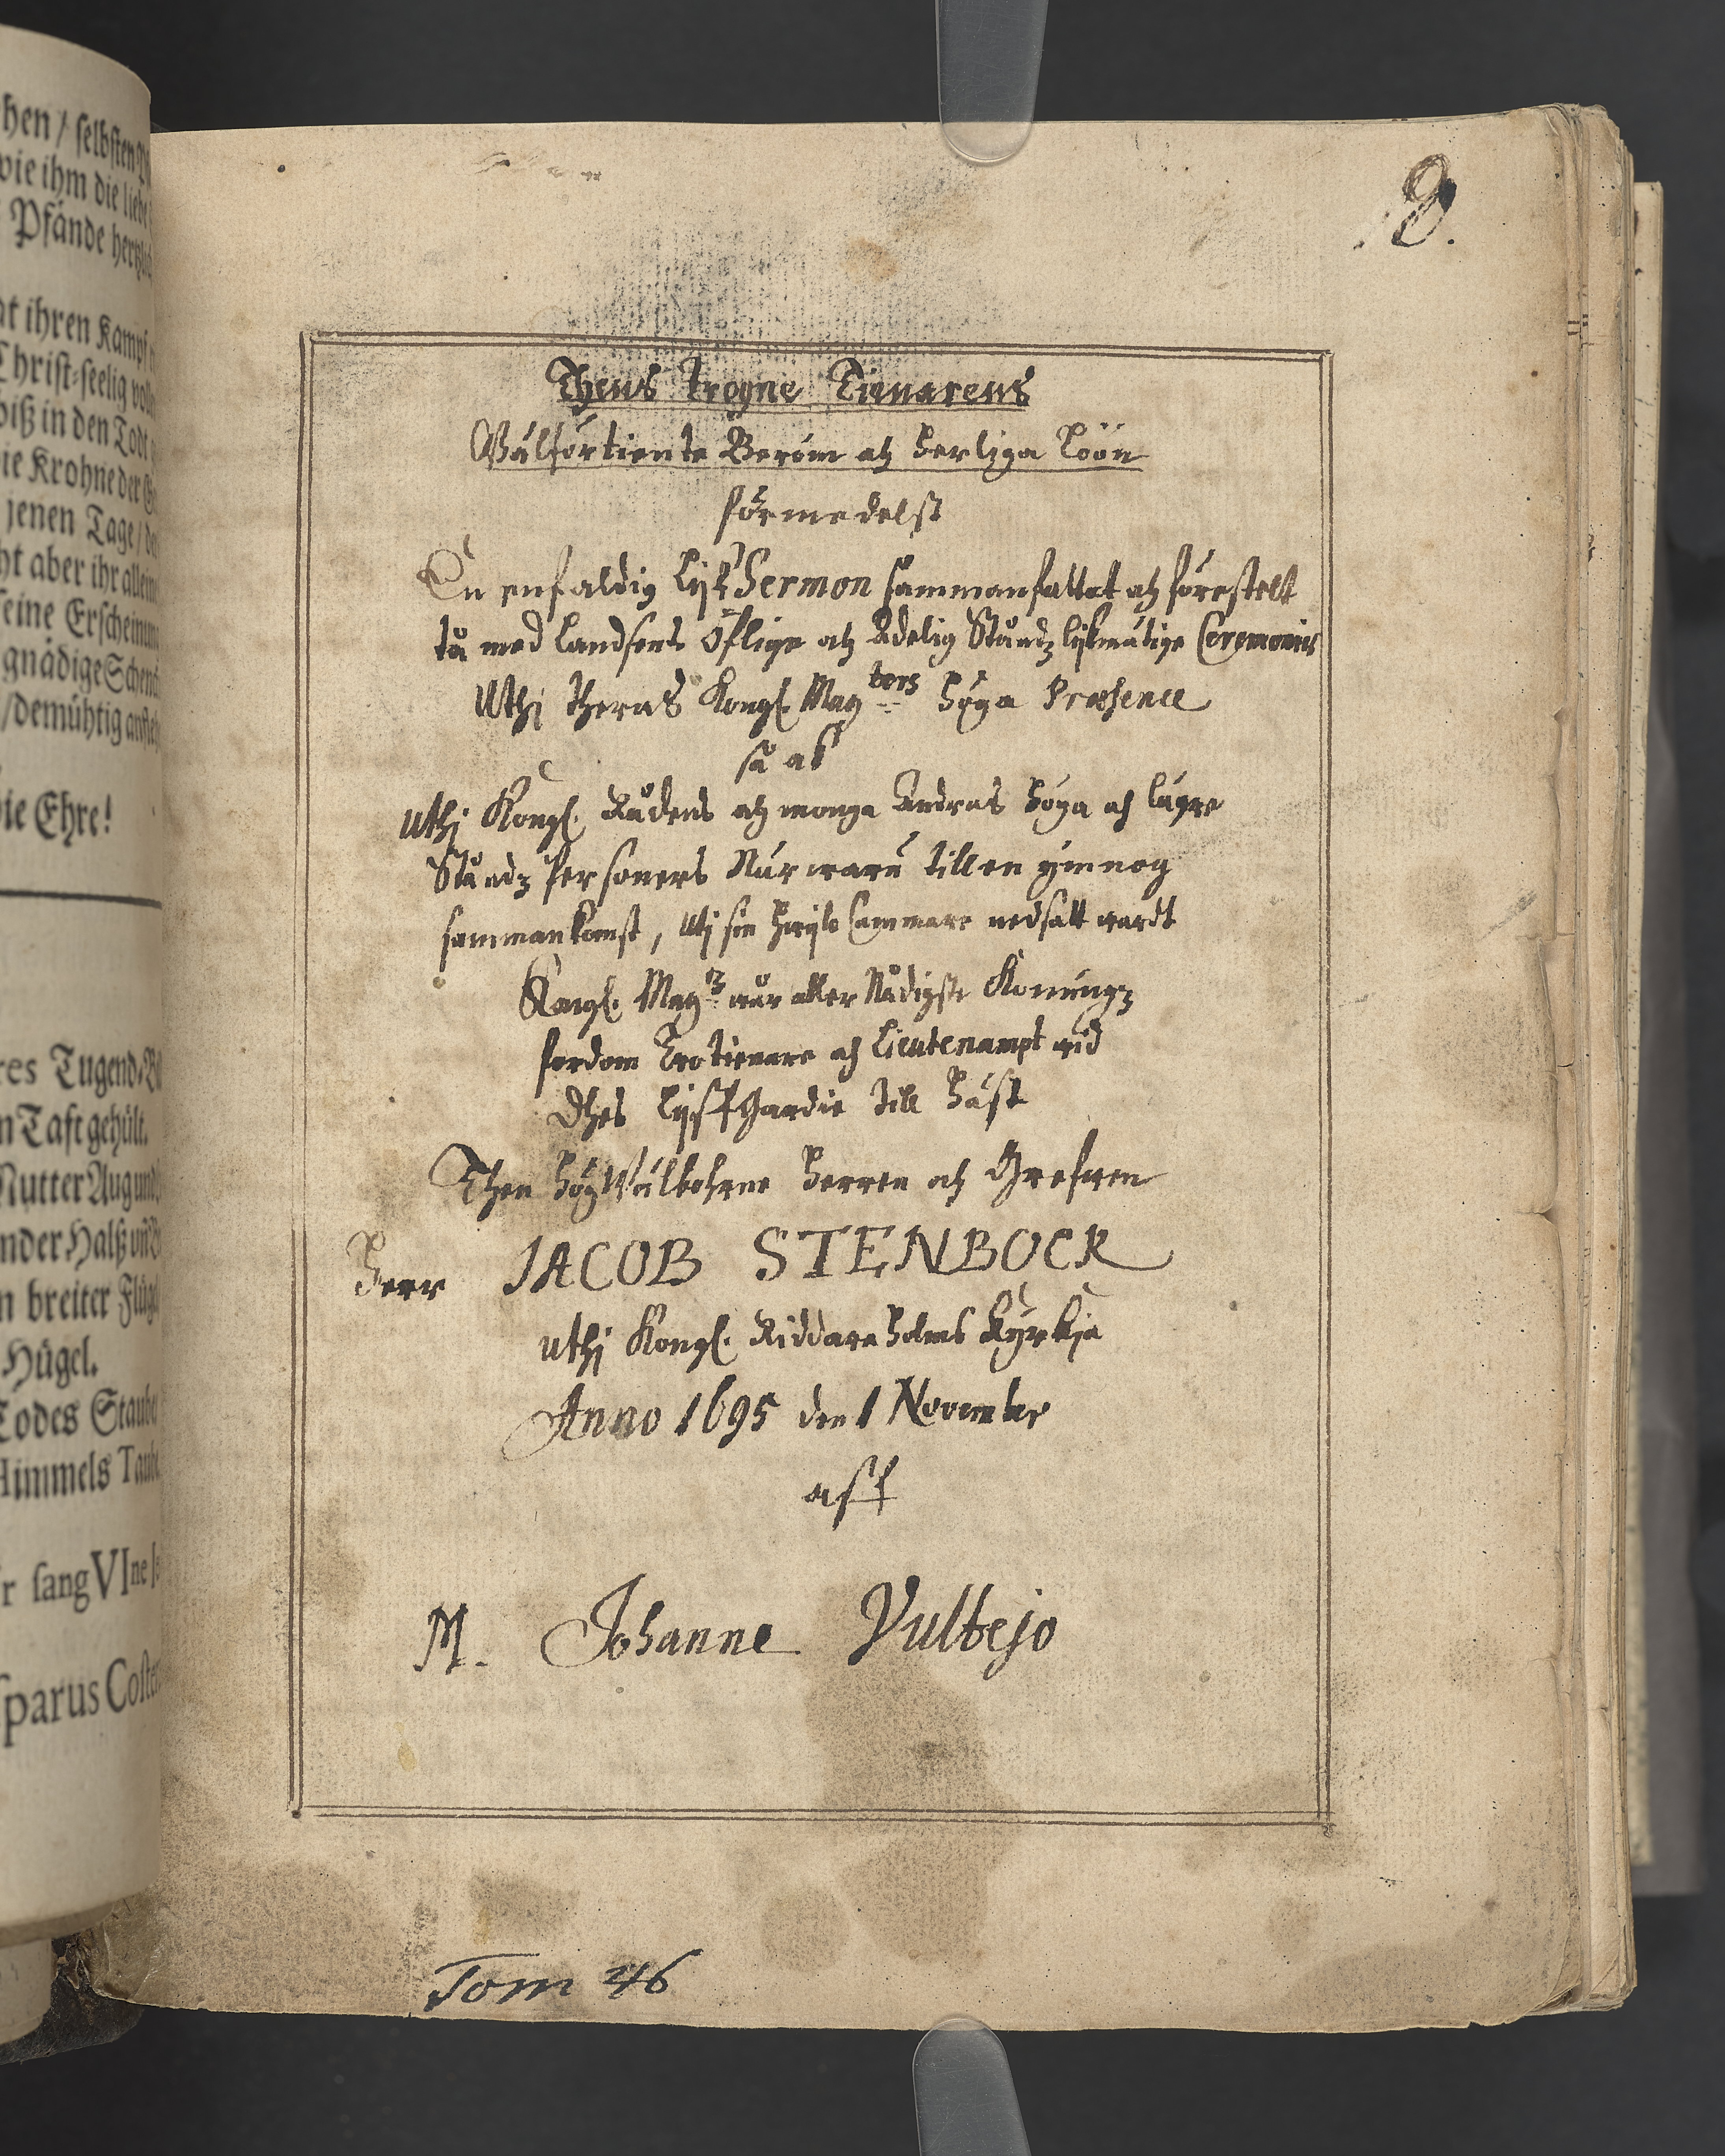 hen / selbsten
wie ihm die liebe
Pfände hertzlich
at ihren Kampf
Christ-seelig voll
biß in den Todt
die Krohne der
jenen Tage / de
ht aber ihr allein
seine Erscheinung
gnädige Schen
/ demühtig anste
die Ehre!
res Tugend-Bi
n Taft gehült.
Mutter Aug und
nder Halß und
n breiter Flügel
Hügel.
Todes Staube
Himmels Taube
r sang VIne
sparus Coster
9.
Thens trogne Tienarens
Wälförtiente Beröm ach herliga Löön
förmedelst
En enfaldig Lijk Sermon sammanfattat ach förestelt
tå med Landsens öflige ach Adelig Ståndz lijkmätige Ceremonier
Uthi theras Kongl. Mayters höga Præsence
så ab
uthi Kongl. Rådens ach monga Andras höga ach lägre
Ståndz Persioners Närwaru till en ymnog
sammankomst, Uti sin hwijlo Cammare nedsatt wardt
Kongl. May:tz wår aller Nådigste Konungz
fordom Trotienare ach Lieutenampt wid
Dhes Lijffgardie till häst
Then högWälbohrne herren ach Grefwen
Herr JACOB STENBOCK
uthi Kongl. Riddareholms Kyrkja
Anno 1695 den 1 Novembr
aff
M. Johanne Vultejo
Tom 46